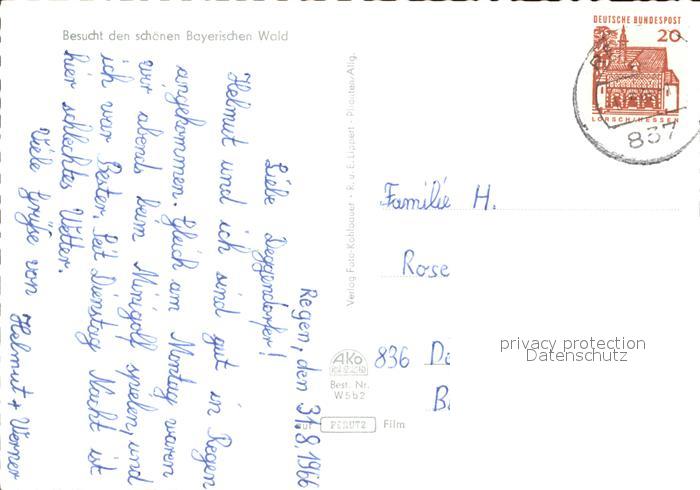 Besucht den schönen Bayerischen Wald
Regen, den 31.8.1966
Liebe Deggendorfer!
Helmut und ich sind gut in Regen
angekommen. Gleich am Montag waren
wir abends beim Minigolf spielen, und
ich war Bester. Seit Dienstag Nacht ist
hier schlechtes Wetter.
Viele Grüße von Helmut + Werner
Verlag Foto-Kohlbauer - R. u. E. Lippert - Pfronten/Allg.
AKO
Best. Nr.
W 5b2
auf PERUTZ Film
DEUTSCHE BUNDESPOST
20
LORSCH/HESSEN
837
Familie H.
Rose
836 De
B
privacy protection
Datenschutz